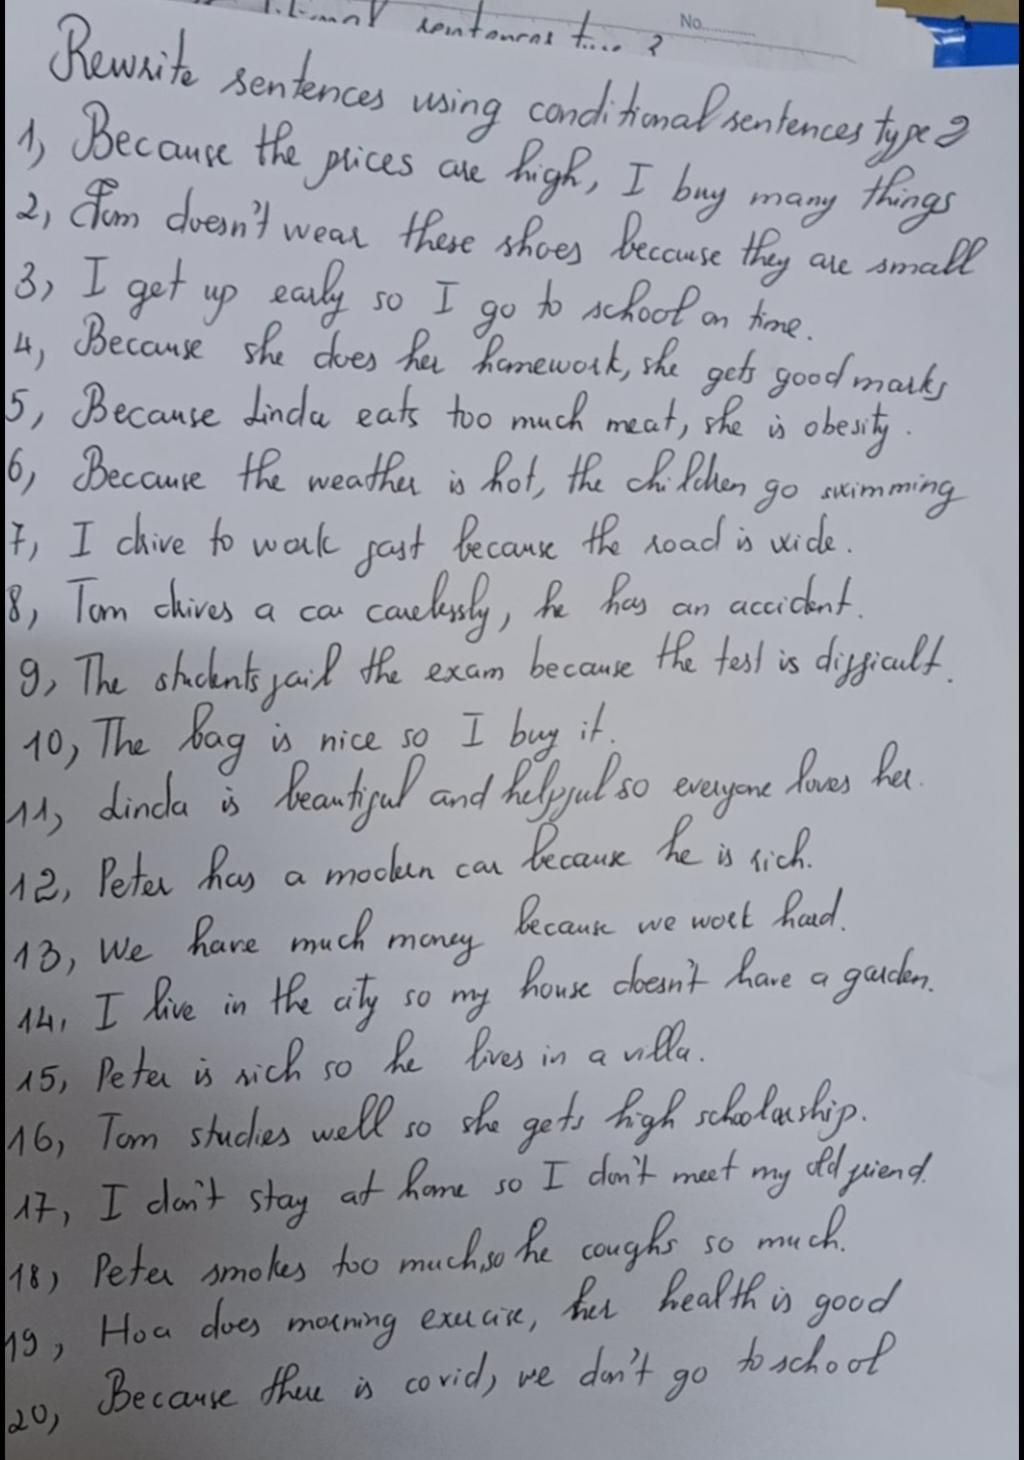 sentences t.... 2
No..........
Rewrite sentences using conditional sentences type 2
1, Because the prices are high, I buy many things
2, Tom doesn't wear these shoes because they are small
3, I get up early so I go to school on time.
4, Because she does her homework, she gets good marks
5, Because Linda eats too much meat, she is obesity.
6, Because the weather is hot, the children go swimming
7, I drive to work fast because the road is wide.
8, Tom drives a car carelessly, he has an accident.
9, The students fail the exam because the test is difficult.
10, The bag is nice so I buy it.
11, Linda is beautiful and helpful so everyone loves her.
12, Peter has a modern car because he is rich.
13, We have much money because we work hard.
14, I live in the city so my house doesn't have a garden.
15, Peter is rich so he lives in a villa.
16, Tom studies well so she gets high schoolarship.
17, I don't stay at home so I don't meet my old friend.
18, Peter smokes too much, so he coughs so much.
19, Hoa does morning exercise, her health is good
20, Because there is covid, we don't go to school